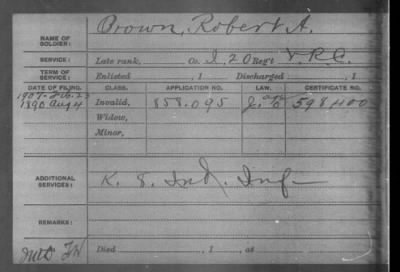 NAME OF SOLDIER: Brown, Robert A.
SERVICE: Late rank, Co. I, 20 Reg't V.R.C.
TERM OF SERVICE: Enlisted , 1 Discharged , 1
DATE OF FILING. CLASS. APPLICATION NO. LAW. CERTIFICATE NO.
1907 Feb. 23
1890 Aug 4 Invalid, 858.095 598400
Widow,
Minor,
ADDITIONAL SERVICES: K. 8. Ind. Inf
REMARKS:
Died , 1 , at